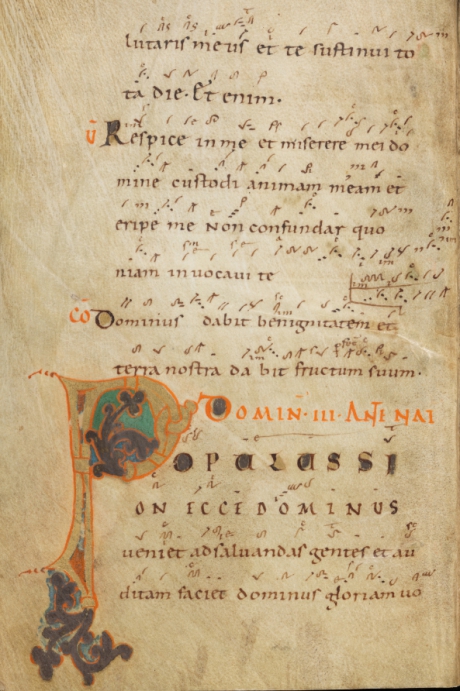 lutaris meus et te sustinui to
ta die. Et enim.
V Respice in me et miserere mei do
mine custodi animam meam et
eripe me non confundar quo
niam invocavi te
CÕ Dominus dabit benignitatem et
terra nostra dabit fructum suum.
DOMIN· III· ANTE NAT
POPULUS SI
ON ECCE DOMINUS
veniet ad salvandas gentes et au
ditam faciet dominus gloriam vo